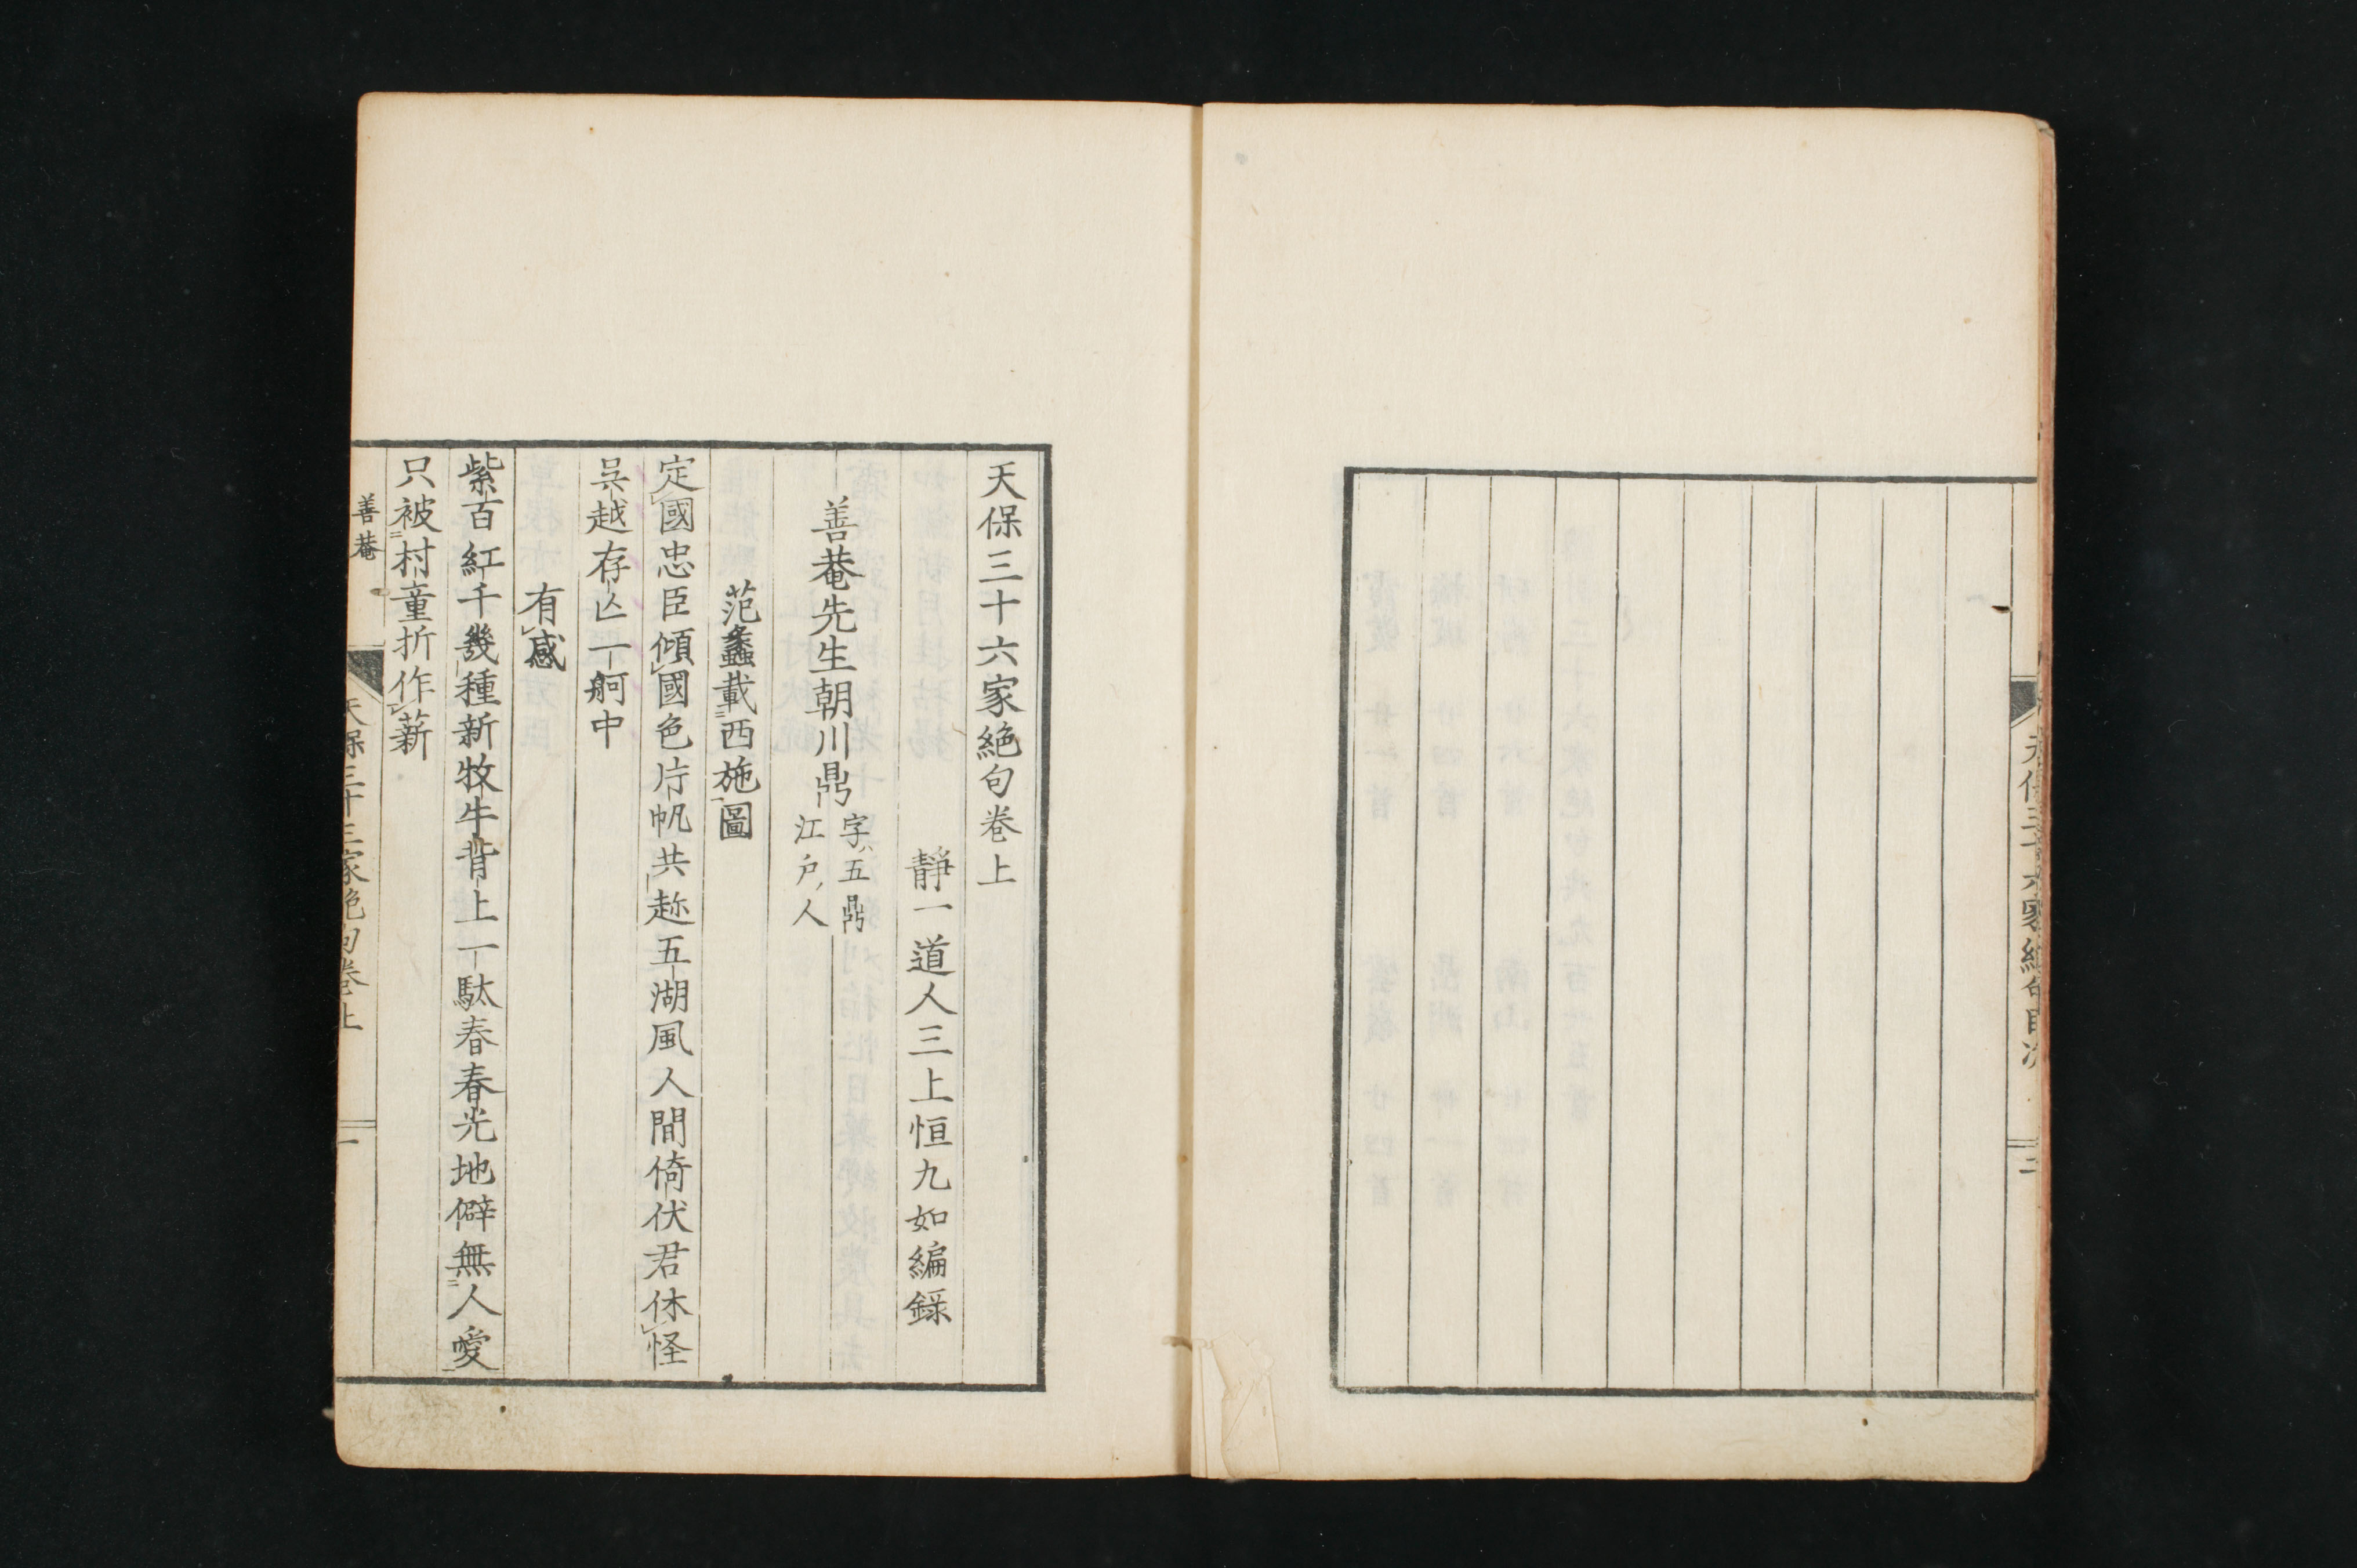 天保三十六家絶句目次
二
天保三十六家絶句卷上
靜一道人三上恒九如編錄
善菴先生朝川鼎
字ハ五鼎
江戶ノ人
范蠡載二西施一圖
定レ國忠臣傾レ國色片帆共趂五湖風人間倚伏君休レ怪
吳越存亾一舸中
有レ感
紫百紅千幾種新牧牛背上一馱春春光地僻無二人愛一
只被二村童折作一レ薪
善菴
天保三十三家絶句卷上
一